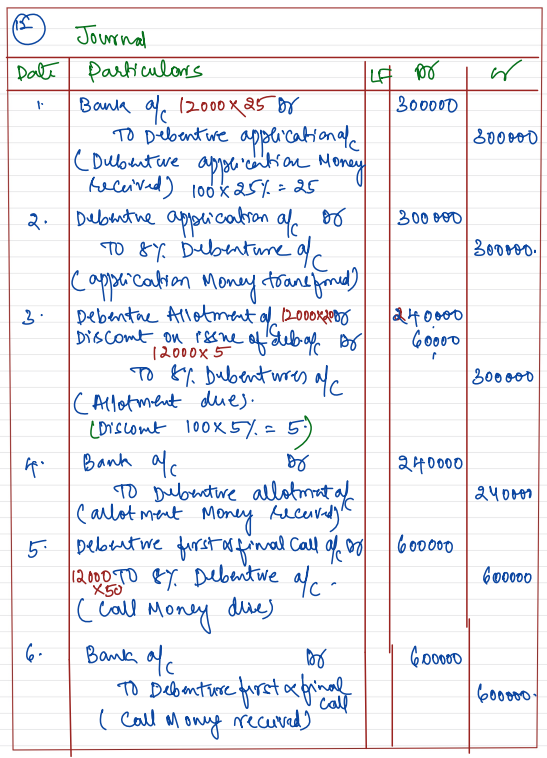 15
Journal
Date Particulars LF Dr Cr
1. Bank a/c 12000 x 25 Dr 300000
To Debenture application a/c 300000
(Debenture application Money
Received) 100 x 25% = 25
2. Debenture application a/c Dr 300000
To 8% Debenture a/c 300000.
(application Money transferred)
3. Debenture Allotment a/c 12000x20 Dr 240000
Discount on issue of deb a/c Dr 60000
12000 x 5
To 8% Debentures a/c 300000
(Allotment due).
(Discount 100 x 5% = 5.)
4. Bank a/c Dr 240000
To Debenture allotment a/c 240000
(allotment Money Received)
5. Debenture first & final Call a/c Dr 600000
12000 To 8% Debenture a/c - 600000
x50
(Call Money due)
6. Bank a/c Dr 600000
To Debenture first & final 600000.
call
(Call Money received)